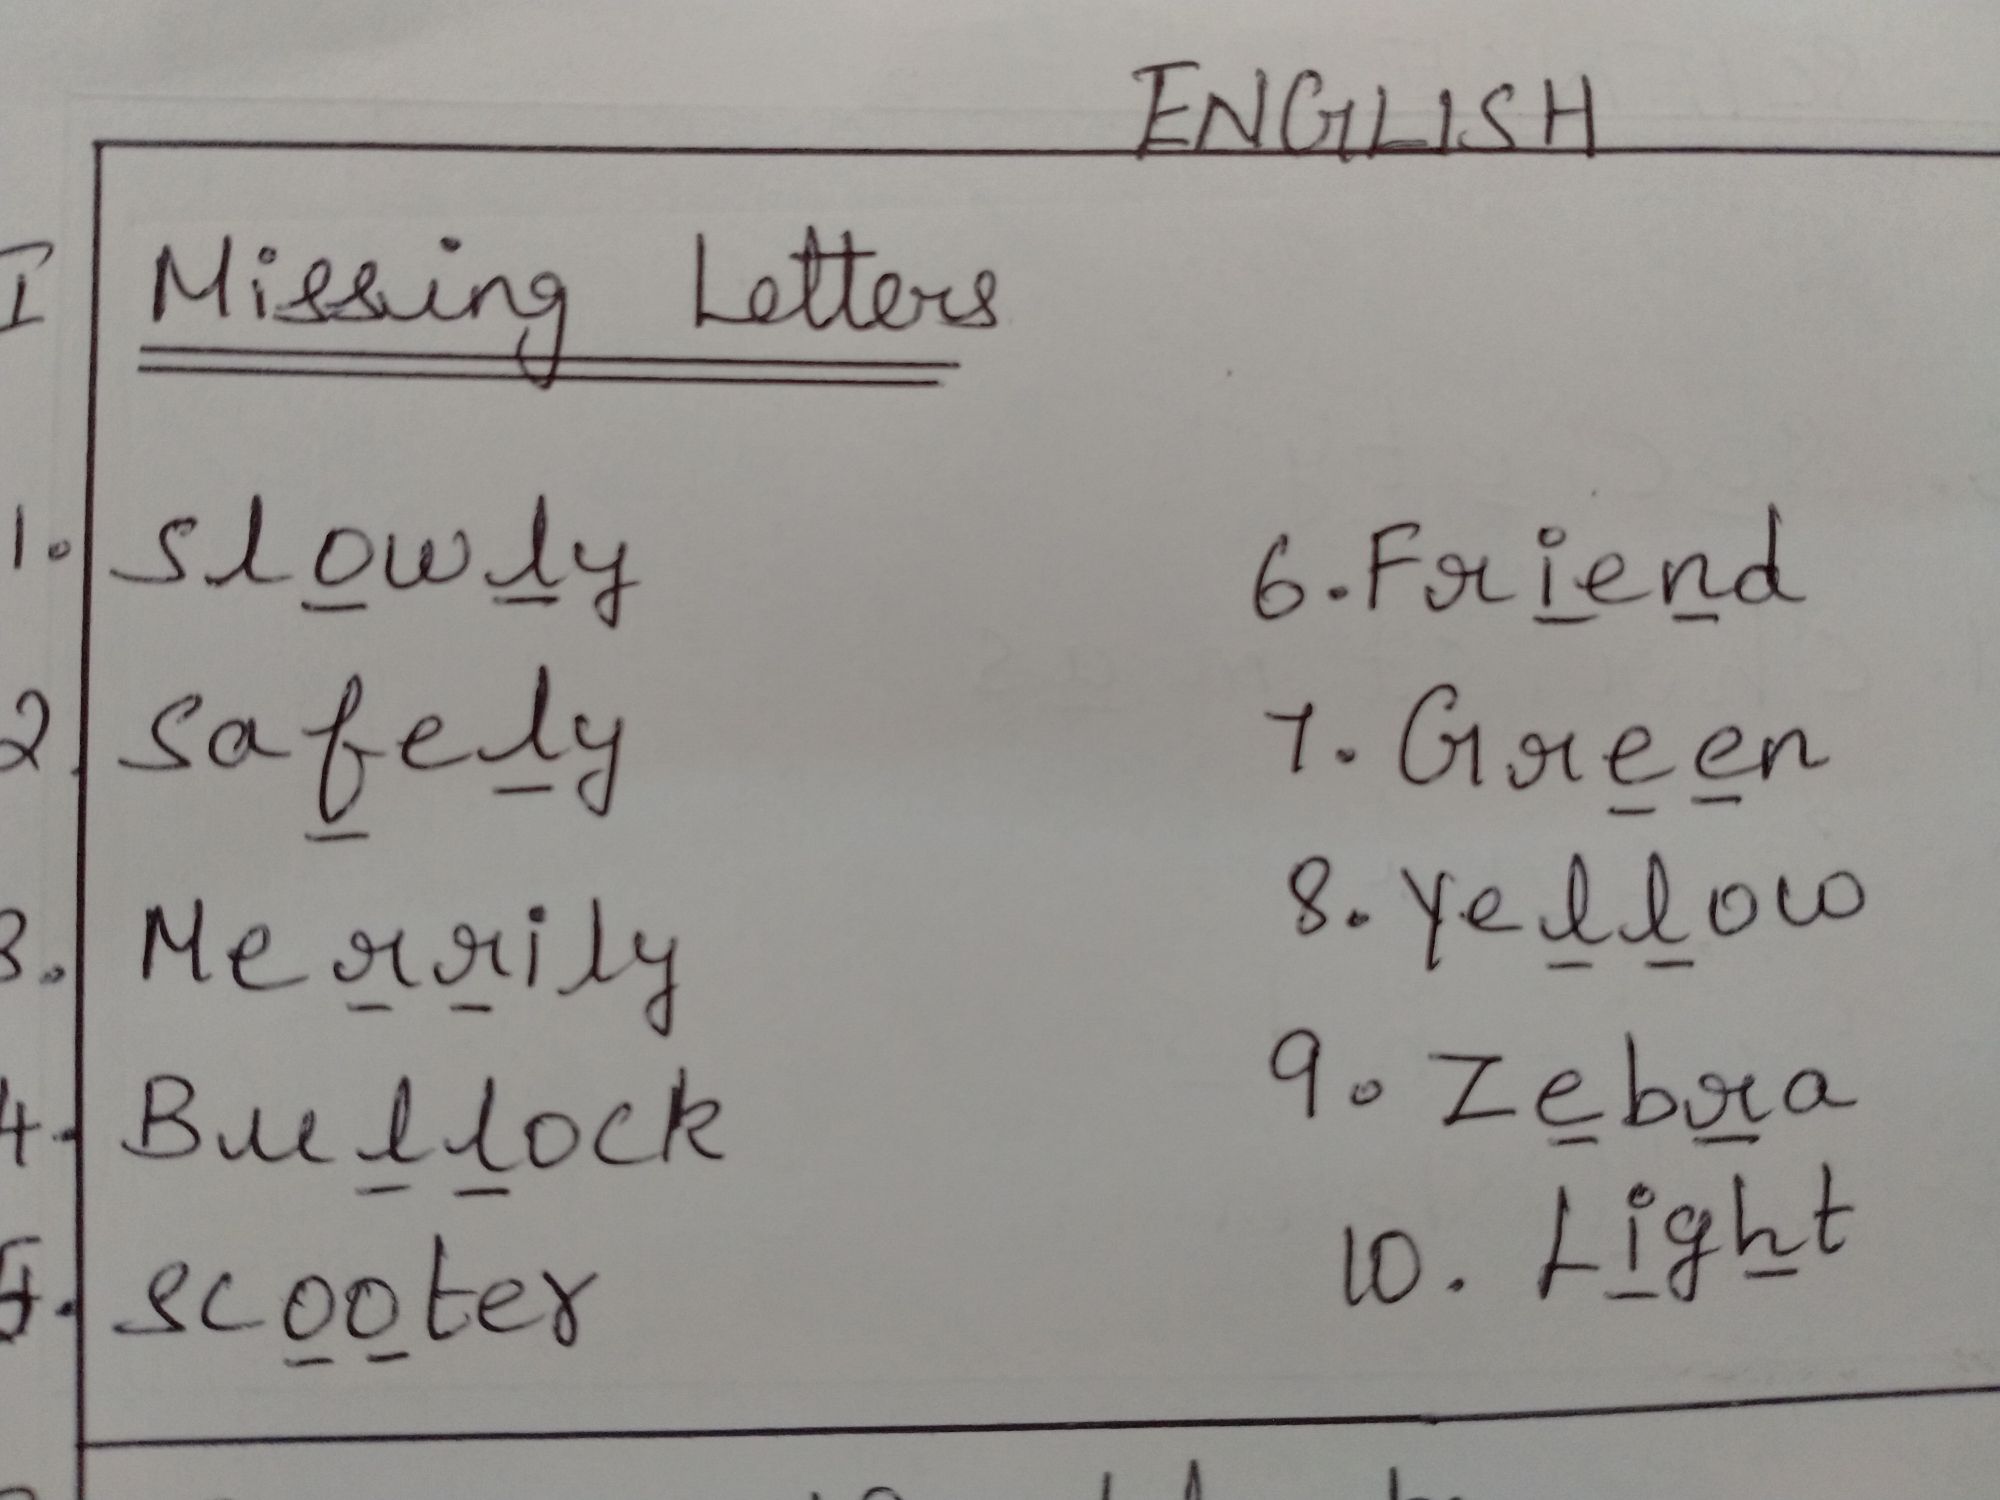 ENGLISH
I Missing Letters
1. Slowly
2. Safely
3. Merrily
4. Bullock
5. Scooter
6. Friend
7. Green
8. Yellow
9. Zebra
10. Light